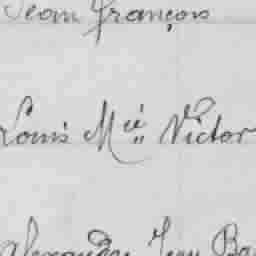 Jean François
Louis Mie Victor
Alexandre Jean Ba